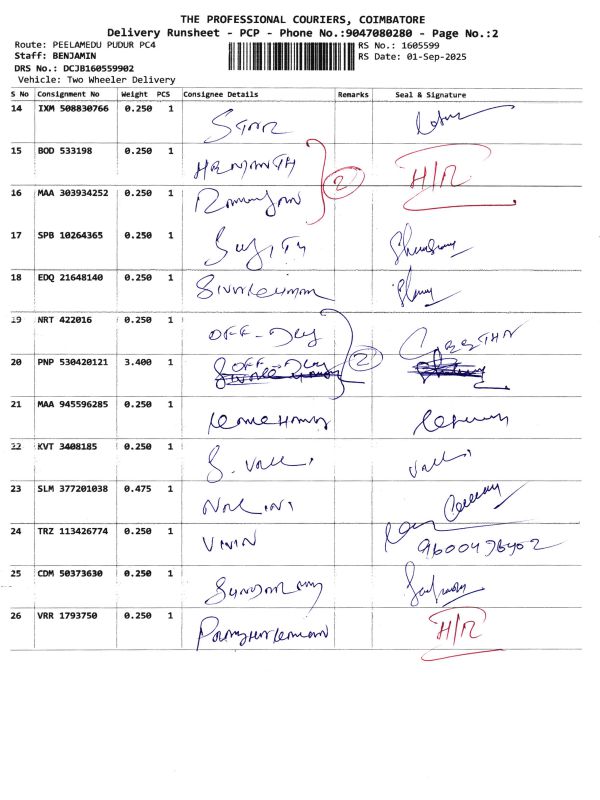 THE PROFESSIONAL COURIERS, COIMBATORE
Delivery Runsheet - PCP - Phone No.:9047080280 - Page No.:2
Route: PEELAMEDU PUDUR PC4
RS No.: 1605599
Staff: BENJAMIN
RS Date: 01-Sep-2025
DRS No.: DCJB160559902
Vehicle: Two Wheeler Delivery
S No Consignment No Weight PCS Consignee Details Remarks Seal & Signature
14 IXM 508830766 0.250 1 STAR
15 BOD 533198 0.250 1 HEMANTH 2 H/R
16 MAA 303934252 0.250 1
17 SPB 10264365 0.250 1
18 EDQ 21648140 0.250 1
19 NRT 422016 0.250 1 OFF-Dly 2
20 PNP 530420121 3.400 1 OFF-Dly
21 MAA 945596285 0.250 1
22 KVT 3408185 0.250 1 S. Valli Valli
23 SLM 377201038 0.475 1 NALINI
24 TRZ 113426774 0.250 1 VIVIN
25 CDM 50373630 0.250 1
26 VRR 1793750 0.250 1 H/R